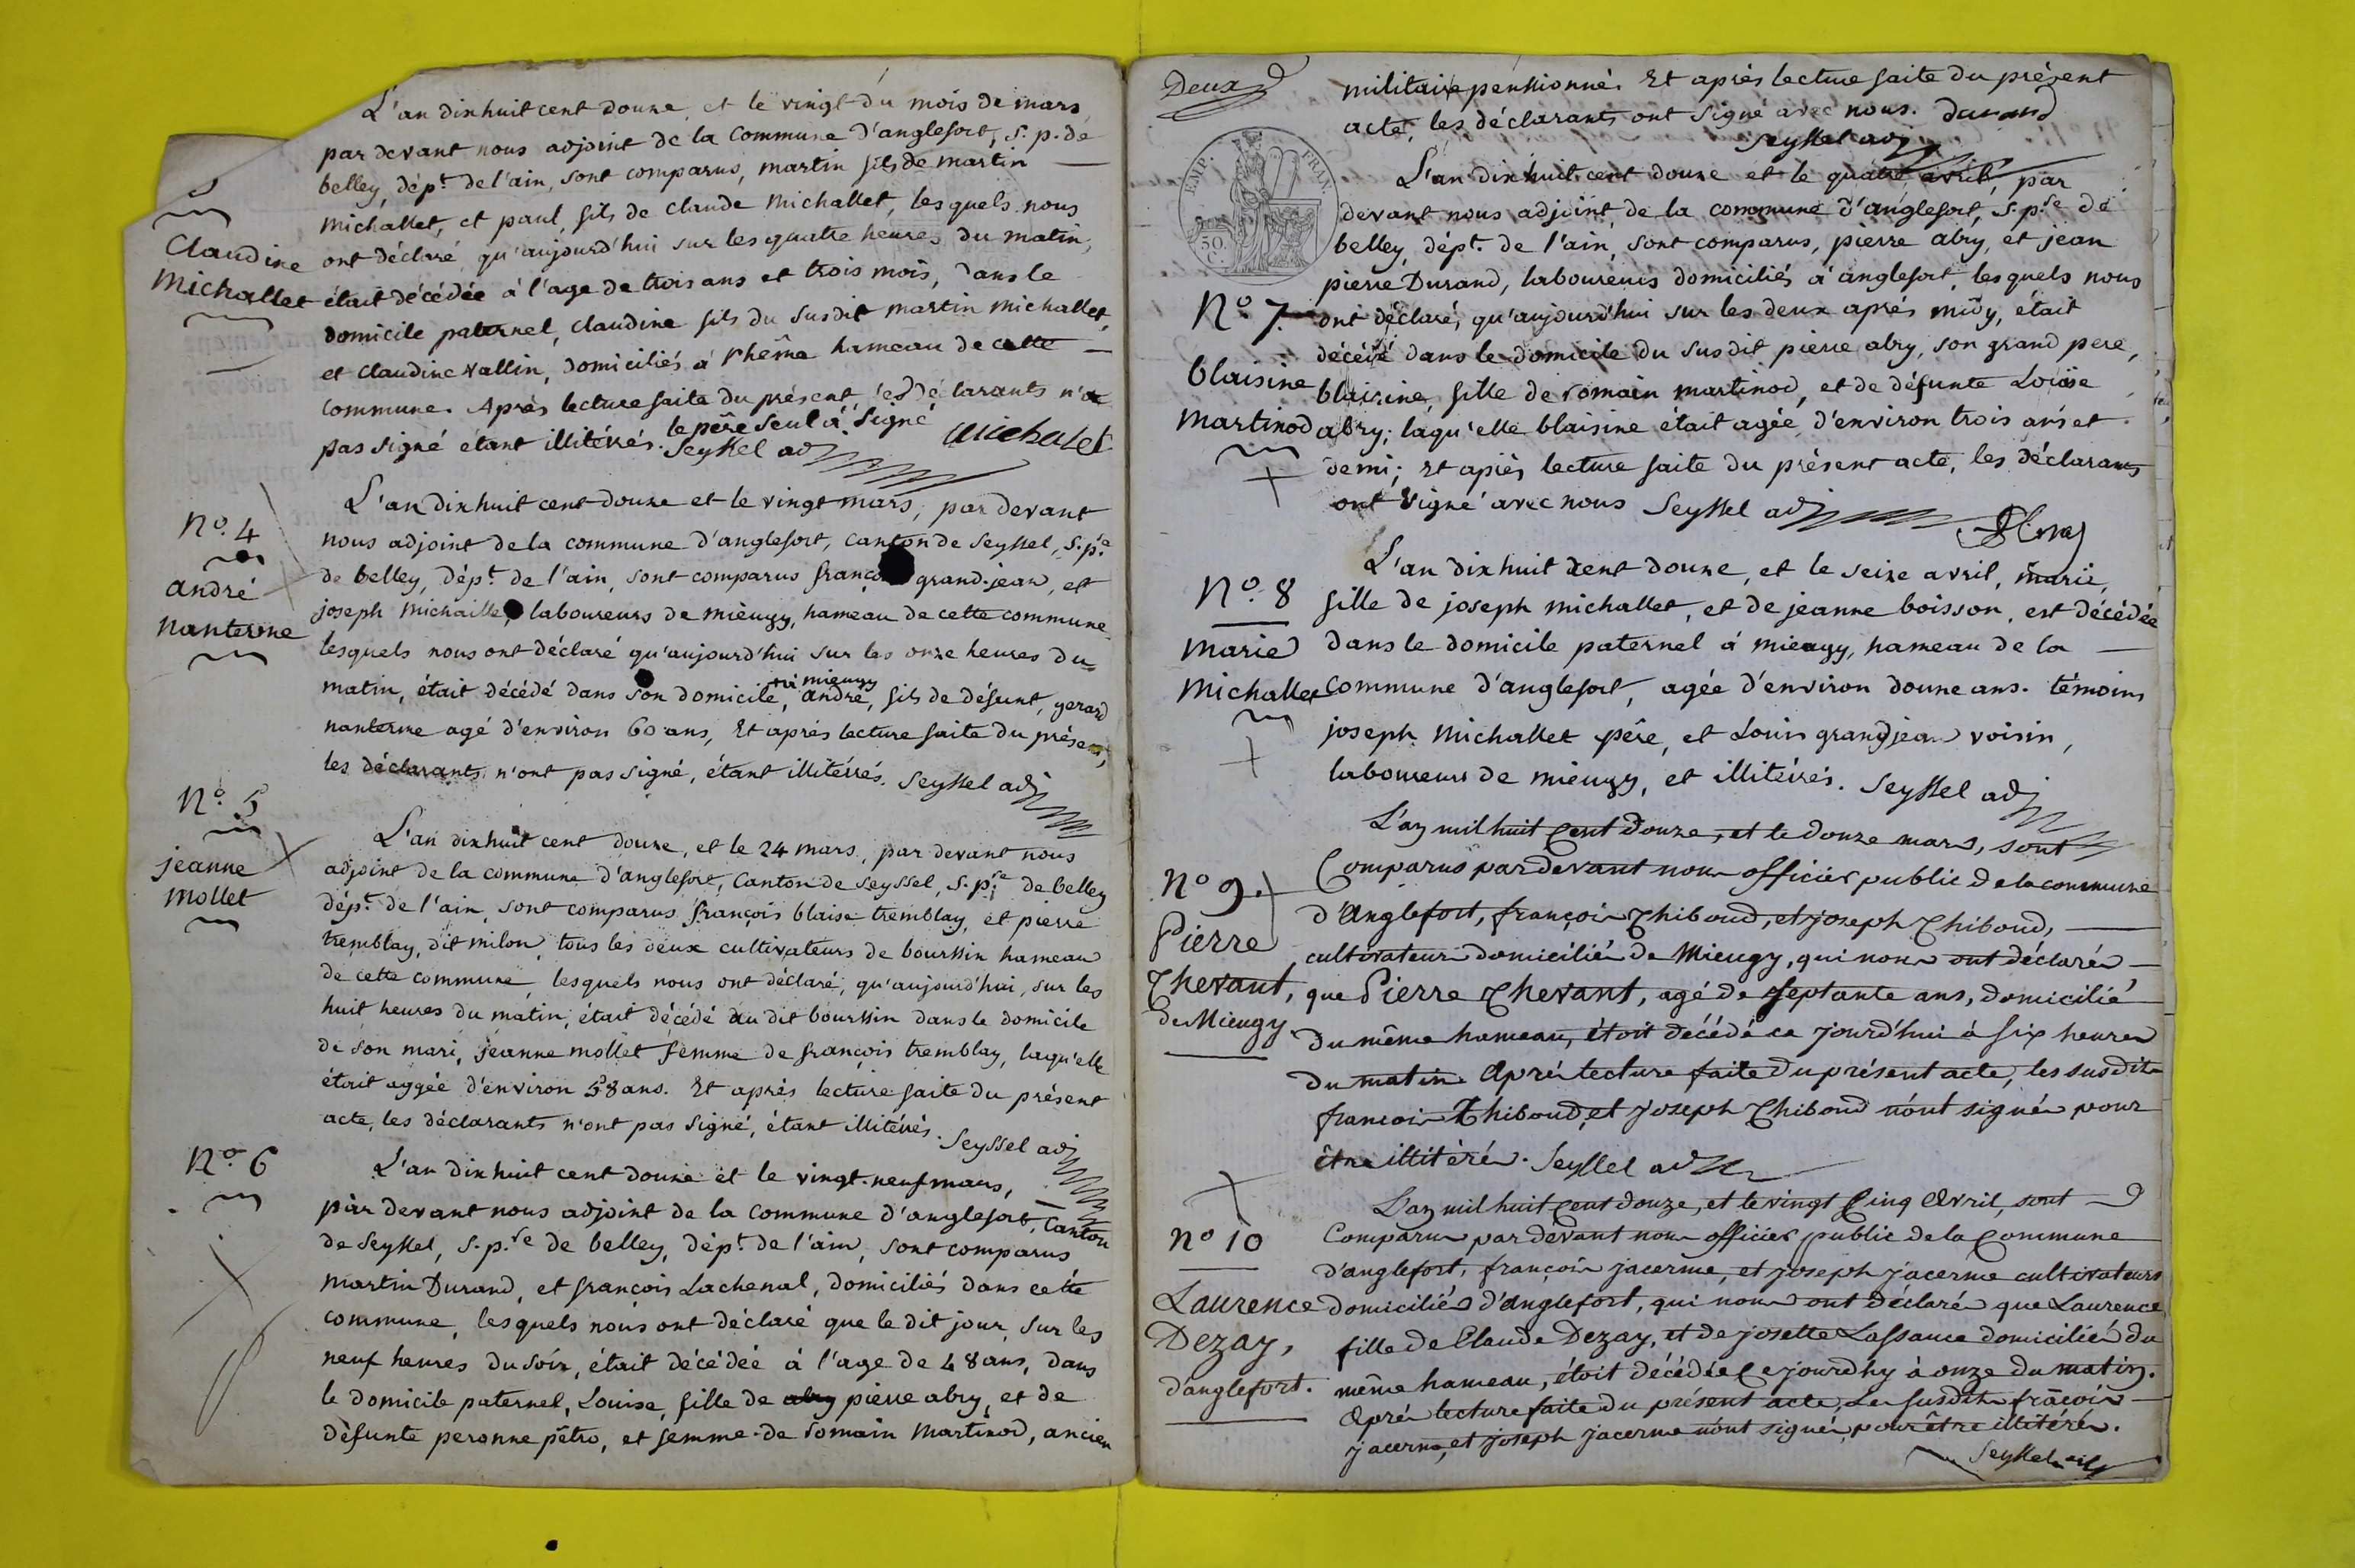 L'an dixhuit cent douze, et le vingt du mois de mars
par devant nous adjoint de la commune d'anglefort, s. p. de
belley, dép.t de l'ain, sont comparus, martin fils de martin
michallet, et paul, fils de claude michallet, lesquels nous
Claudine
Michallet
ont déclaré, qu'aujourd'hui sur les quatre heures du matin,
était décédée à l'age de trois ans et trois mois, dans le
domicile paternel, claudine fils du susdit martin michallet,
et claudine vallin, domiciliés à rhême hameau de cette
commune. Après lecture faite du présent, les déclarants n'ont
pas signé étant illitérrés. le père seul à signé
Seyssel adj Michalet
N.o 4
andré
nanterme
L'an dixhuit cent douze et le vingt mars, par devant
nous adjoint de la commune d'anglefort, canton de Seyssel, s.p.re
de belley, dép.t de l'ain, sont comparus grand-jean, et
joseph michaille, laboureurs de mieugy, hameau de cette commune
lesquels nous ont déclaré qu'aujourd'hui sur les onze heures du
à mieugy
matin, était décédé dans son domicile, andré, fils de défunt, gerard
nanterme agé d'environ 60 ans, Et après lecture faite du présent,
les déclarants n'ont pas signé, étant illitérrés. Seyssel adj
N.o 5
jeanne
mollet
L'an dixhuit cent douze, et le 24 mars, par devant nous
adjoint de la commune d'anglefort, canton de Seyssel, s.p.re de belley
dép.t de l'ain, sont comparus françois blaise tremblay, et pierre
tremblay, dit milon, tous les deux cultivateurs de bourssin hameau
de cette commune, lesquels nous ont déclaré, qu'aujourd'hui, sur les
huit heures du matin, était décédé au dit bourssin dans le domicile
de son mari, jeanne mollet femme de françois tremblay, laqu'elle
était aggée d'environ 58 ans. Et après lecture faite du présent
acte, les déclarants n'ont pas signé, étant illitérrés. Seyssel adj
N.o 6
L'an dixhuit cent douze et le vingt-neuf mars,
par devant nous adjoint de la commune d'anglefort, Canton
de Seyssel, s.p.re de belley, dép.t de l'ain, sont comparus
martin Durand, et françois Lachenal, domiciliés dans cette
commune, lesquels nous ont déclaré que le dit jour, sur les
neuf heures du soir, était décédéé à l'age de 48 ans, dans
le domicile paternel, Louise, fille de abry pierre abry, et de
défunte peronne pétro, et femme de romain Martinod, ancien
Deux
militaire penssionné. Et après lecture faite du présent
acte, les déclarants ont signé avec nous. durand
Seyssel adj
EMP. FRAN.
50
C.
L'an dixhuit cent douze et le quatre avril, par
devant nous adjoint de la commune d'anglefort, s.p.re de
belley, dép.t de l'ain, sont comparus, pierre abry, et jean
pierre Durand, laboureurs domiciliés à anglefort, lesquels nous
N.o 7
blaisine
Martinod
ont déclaré, qu'aujourd'hui sur les deux après midy, était
décédé dans le domicile du susdit pierre abry, son grand pere,
blaisine, fille de romain martinod, et de défunte Louise
abry; laqu'elle blaisine était agée d'environ trois ans et
demi; Et après lecture faite du présent acte, les déclarants
ont signé avec nous Seyssel adj
N.o 8
Marie
Michallet
L'an dixhuit cent douze, et le seize avril, marie,
fille de joseph michallet, et de jeanne boisson, est décédée
dans le domicile paternel à mieugy, hameau de la
commune d'anglefort, agée d'environ douze ans. témoins
joseph michallet père, et Louis grandjean voisin,
laboureurs de mieugy, et illitérrés. Seyssel adj
N.o 9.
Pierre
Thevant,
de Mieugy
L'an mil huit Cent douze, et le douze mars, sont
Comparus pardevant nous officier public de la commune
d'Anglefort, françois Thiboud, et joseph Thiboud,
cultivateurs domiciliés de Mieugy, qui nous ont déclarés
que Pierre Thevant, agé de septante ans, domicilié
du même hameau, étoit décédé ce jourd'hui à six heures
du matin. Après lecture faite du présent acte, les susdits
francois Thiboud, et joseph Thiboud n'ont signés pour
être illitérés. Seyssel adj
n.o 10
Laurence
Dezay,
d'anglefort.
L'an mil huit Cent douze, et le vingt Cinq Avril, sont
Comparus par devant nous officier public de la Commune
d'anglefort, françois jacerme, et joseph jacerme cultivateurs
domiciliés d'Anglefort, qui nous ont déclarés que Laurence
fille de Claude Dezay, et de josette Lassauce domiciliés du
même hameau, étoit décédée Ce jourdhy à onze du matin.
Après lecture faite du présent acte, Les susdits françois
jacerme, et joseph jacerme n'ont signés, pour être illitérés.
Seyssel adj